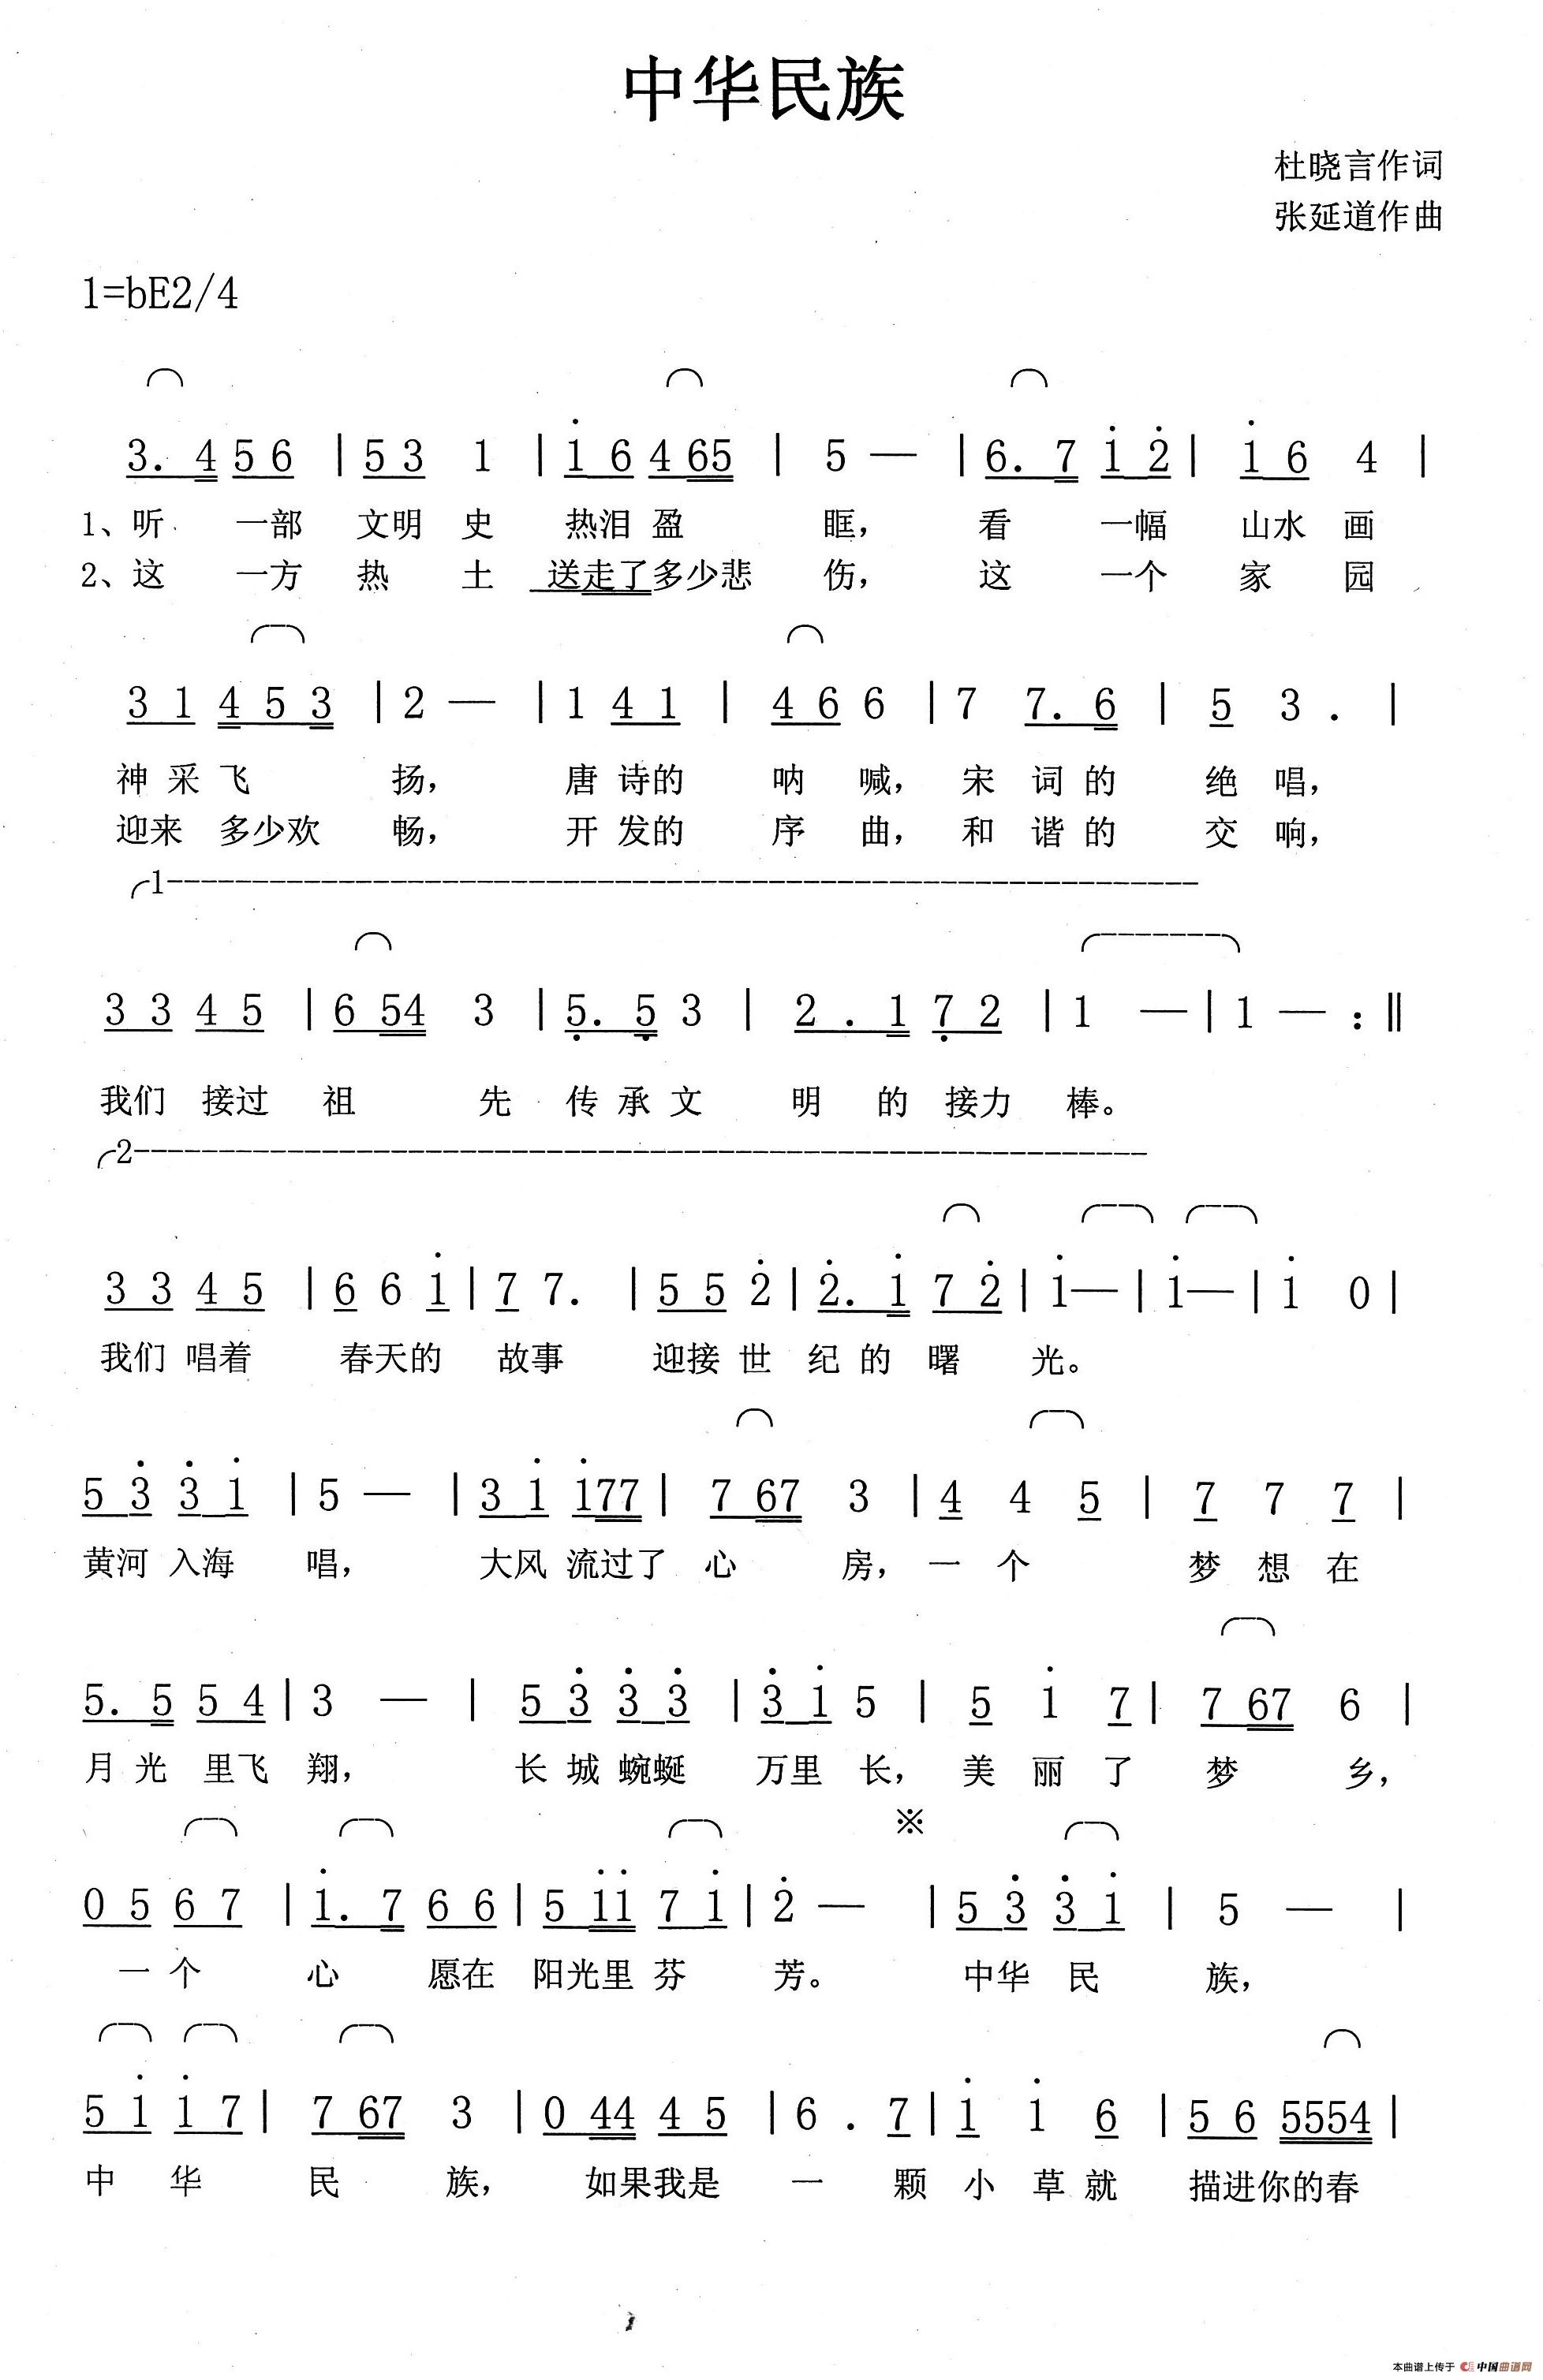 中华民族
杜晓言作词
张延道作曲
1=bE2/4
3. 4 5 6 | 5 3 1 | 1 6 4 65 | 5 — | 6. 7 1 2 | 1 6 4 |
1、听 一部 文明 史 热泪 盈 眶， 看 一幅 山水 画
2、这 一方 热 土 送走了多少悲 伤， 这 一个 家 园
3 1 4 5 3 | 2 — | 1 4 1 | 4 6 6 | 7 7. 6 | 5 3 . |
神 采 飞 扬， 唐 诗的 呐 喊， 宋 词 的 绝 唱，
迎来 多少欢 畅， 开 发的 序 曲， 和 谐 的 交 响，
1
3 3 4 5 | 6 54 3 | 5. 5 3 | 2 . 1 7 2 | 1 — | 1 — :‖
我们 接过 祖 先 传 承 文 明 的 接力 棒。
2
3 3 4 5 | 6 6 1 | 7 7. | 5 5 2 | 2. 1 7 2 | 1— | 1— | 1 0 |
我们 唱着 春天的 故事 迎接 世 纪 的 曙 光。
5 3 3 1 | 5 — | 3 1 177 | 7 67 3 | 4 4 5 | 7 7 7 |
黄河 入海 唱， 大风 流过了 心 房， 一 个 梦 想 在
5. 5 5 4 | 3 — | 5 3 3 3 | 3 1 5 | 5 1 7 | 7 67 6 |
月 光 里飞 翔， 长 城 蜿蜒 万里 长， 美 丽 了 梦 乡，
※
0 5 6 7 | 1. 7 6 6 | 5 11 7 1 | 2 — | 5 3 3 1 | 5 — |
一 个 心 愿在 阳光里 芬 芳。 中华 民 族，
5 1 1 7 | 7 67 3 | 0 44 4 5 | 6 . 7 | 1 1 6 | 5 6 5554 |
中 华 民 族， 如果我是 一 颗 小 草 就 描进你的春
1
本曲谱上传于 中国曲谱网